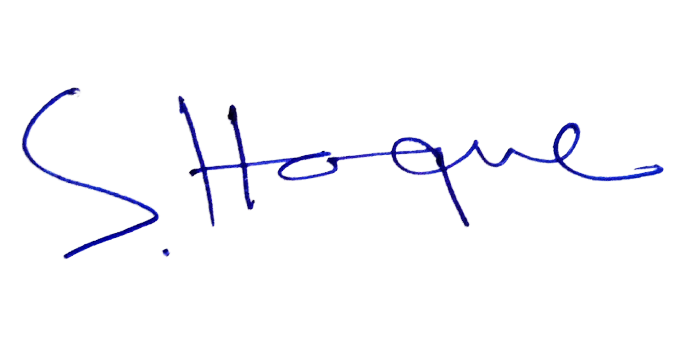 S. Hoque